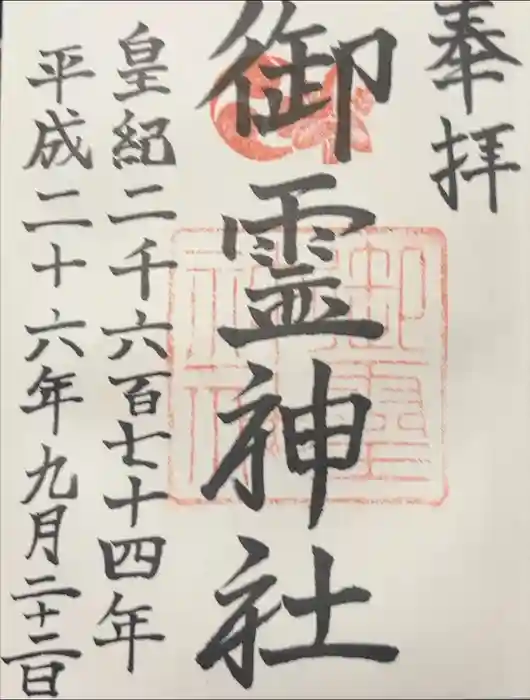 奉拝
御霊神社
皇紀二千六百七十四年
平成二十六年九月二十二日